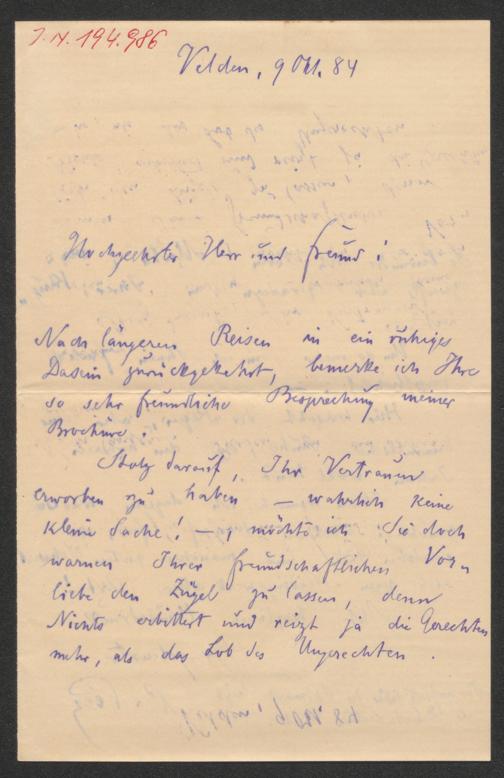 J. N. 194.986
Velden, 9 Okt. 84
Hochgeehrter Herr und Freund!
Nach längeren Reisen in ein ruhiges
Dasein zurückgekehrt, bemerke ich Ihre
so sehr freundliche Besprechung meiner
Brochüre.
Stolz darauf, Ihr Vertrauen
erworben zu haben — wahrlich keine
kleine Sache! —, möchte ich Sie doch
warnen Ihrer freundschaftlichen Vor-
liebe den Zügel zu lassen, denn
Nichts erbittert und reizt ja die Gerechten
mehr, als das Lob des Ungerechten.